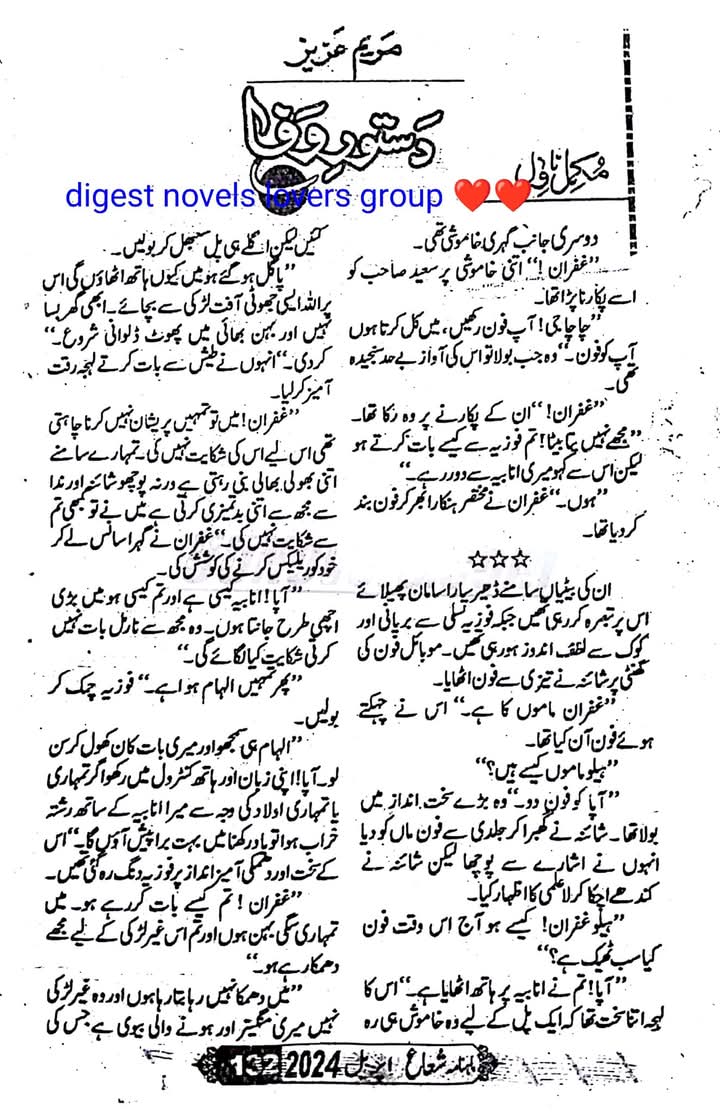 مریم عزیز
دستورِ وفا
مکمل ناول
digest novels lovers group ❤️❤️
دوسری جانب گہری خاموشی تھی۔
”غفران!“ اتنی خاموشی پر سعید صاحب کو
اسے پکارنا پڑا تھا۔
”چاچا جی! آپ فون رکھیں، میں کل کرتا ہوں
آپ کو فون۔“ وہ جب بولا تو اس کی آواز بے حد سنجیدہ
تھی۔
”غفران!“ ان کے پکارنے پر وہ رکا تھا۔
”مجھے نہیں پتا بیٹا! تم فوزیہ سے کیسے بات کرتے ہو
لیکن اس سے کہو میری انابیہ سے دور رہے۔“
”ہوں۔“ غفران نے مختصر ہنکارا بھر کر فون بند
کر دیا تھا۔
☆☆☆
ان کی بیٹیاں سامنے ڈھیر سارا سامان پھیلائے
اس پر تبصرہ کر رہی تھیں جبکہ فوزیہ تسلی سے بریانی اور
کوک سے لطف اندوز ہو رہی تھیں۔ موبائل فون کی
گھنٹی پر شائنہ نے تیزی سے فون اٹھایا۔
”غفران ماموں کا ہے۔“ اس نے چہکتے
ہوئے فون آن کیا تھا۔
”ہیلو ماموں کیسے ہیں؟“
”آپا کو فون دو۔“ وہ بڑے سخت انداز میں
بولا تھا۔ شائنہ نے گھبرا کر جلدی سے فون ماں کو دیا
انہوں نے اشارے سے پوچھا لیکن شائنہ نے
کندھے اچکا کر لاعلمی کا اظہار کیا۔
”ہیلو غفران! کیسے ہو آج اس وقت فون
کیا سب ٹھیک ہے؟“
”آپا! تم نے انابیہ پر ہاتھ اٹھایا ہے۔“ اس کا
لہجہ اتنا سخت تھا کہ ایک پل کے لیے وہ خاموش ہی رہ
گئیں لیکن اگلے ہی پل سنبھل کر بولیں۔
”پاگل ہو گئے ہو میں کیوں ہاتھ اٹھاؤں گی اس
پر اللہ ایسی جھوٹی آفت لڑکی سے بچائے۔ ابھی گھر بسا
نہیں اور بہن بھائی میں پھوٹ ڈلوانی شروع۔“
کردی۔“ انہوں نے طیش سے بات کرتے لہجہ رقت
آمیز کر لیا۔
”غفران! میں تو تمہیں پریشان نہیں کرنا چاہتی
تھی اس لیے اس کی شکایت نہیں کی۔ تمہارے سامنے
اتنی بھولی بھالی بنی رہتی ہے ورنہ پوچھو شائنہ اور ندا
سے مجھ سے اتنی بدتمیزی کرتی ہے میں نے تو کبھی تم
سے شکایت نہیں کی۔“ غفران نے گہرا سانس لے کر
خود کو ریلیکس کرنے کی کوشش کی۔
”آپا! انابیہ کیسی ہے اور تم کیسی ہو میں بڑی
اچھی طرح جانتا ہوں۔ وہ مجھ سے نارمل بات نہیں
کرتی شکایت کیا لگائے گی۔“
”پھر تمہیں الہام ہوا ہے۔“ فوزیہ چمک کر
بولیں۔
”الہام ہی سمجھو اور میری بات کان کھول کر سن
لو۔ آپا! اپنی زبان اور ہاتھ کنٹرول میں رکھو اگر تمہاری
یا تمہاری اولاد کی وجہ سے میرا انابیہ کے ساتھ رشتہ
خراب ہوا تو یاد رکھنا میں بہت برا پیش آؤں گا۔“ اس
کے سخت اور دھمکی آمیز انداز پر فوزیہ دنگ رہ گئی تھیں۔
”غفران! تم کیسے بات کر رہے ہو۔ میں
تمہاری سگی بہن ہوں اور تم اس غیر لڑکی کے لیے مجھے
دھمکا رہے ہو۔“
”میں دھمکا نہیں رہا بتا رہا ہوں اور وہ غیر لڑکی
نہیں میری منگیتر اور ہونے والی بیوی ہے جس کی
ماہنامہ شعاع اپریل 2024 132